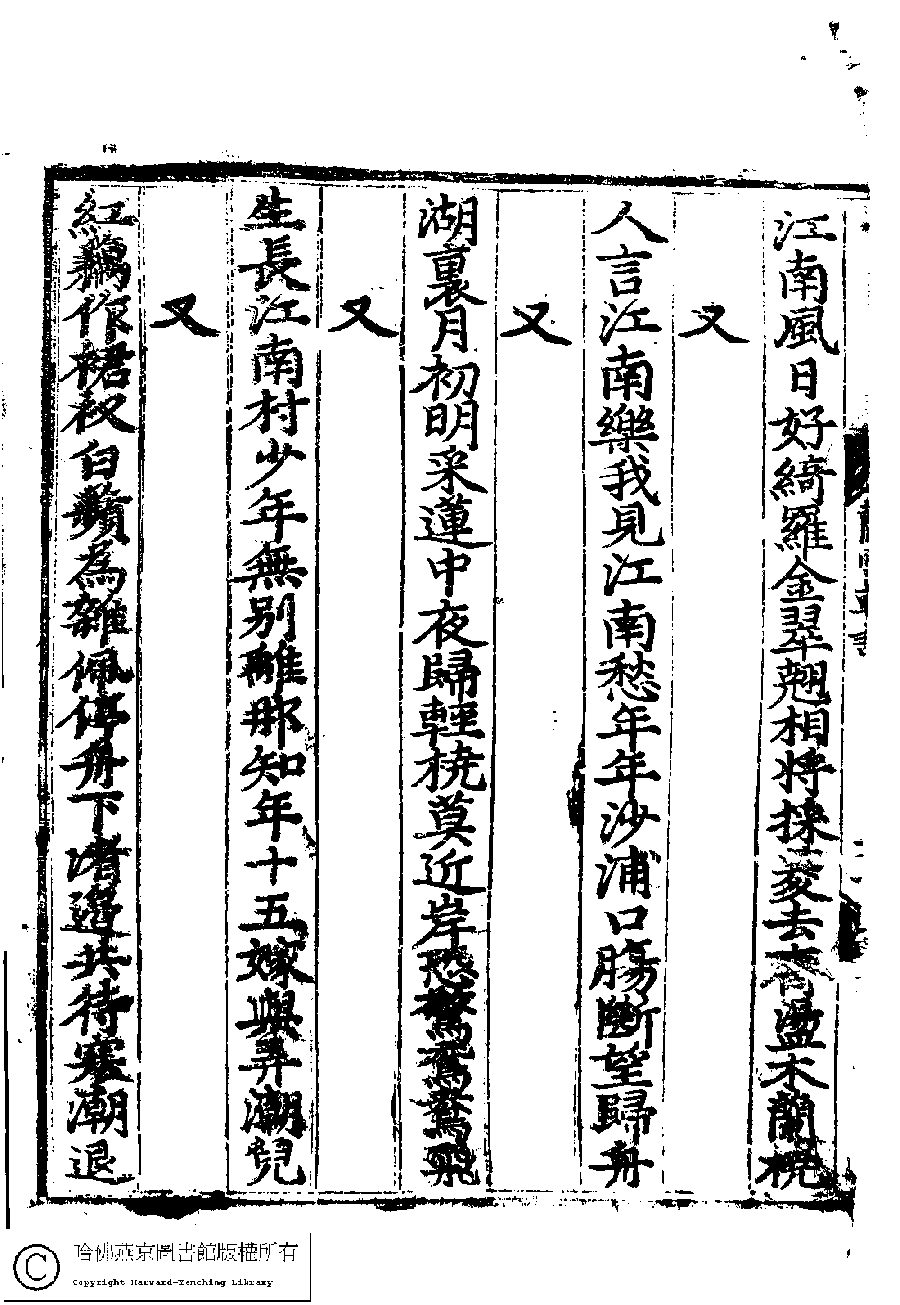 江南風日好綺羅金翠翹相將採菱去齊盪木蘭橈
又
人言江南樂我見江南愁年年沙浦口膓斷望歸舟
又
湖裏月初明采蓮中夜歸輕橈莫近岸恐驚鴛鴦飛
又
生長江南村少年無別離那知年十五嫁與弄潮兒
又
紅藕作裙衩白蘋為雜佩停舟下渚邊共待寒潮退
哈佛燕京圖書館版權所有
Copyright Harvard-Yenching Library